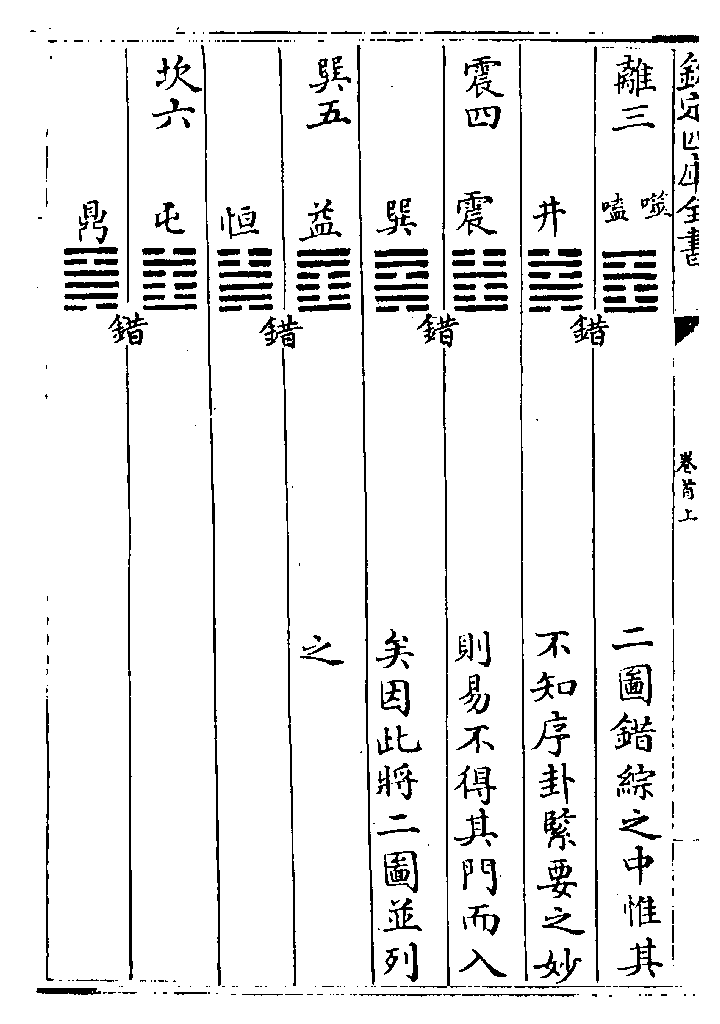 欽定四庫全書
卷首上
離三
噬嗑
井
錯
二圖錯綜之中惟其
不知序卦緊要之妙
震四
震
巽
錯
則易不得其門而入
矣因此將二圖並列
巽五
益
恒
錯
之
坎六
屯
鼎
錯